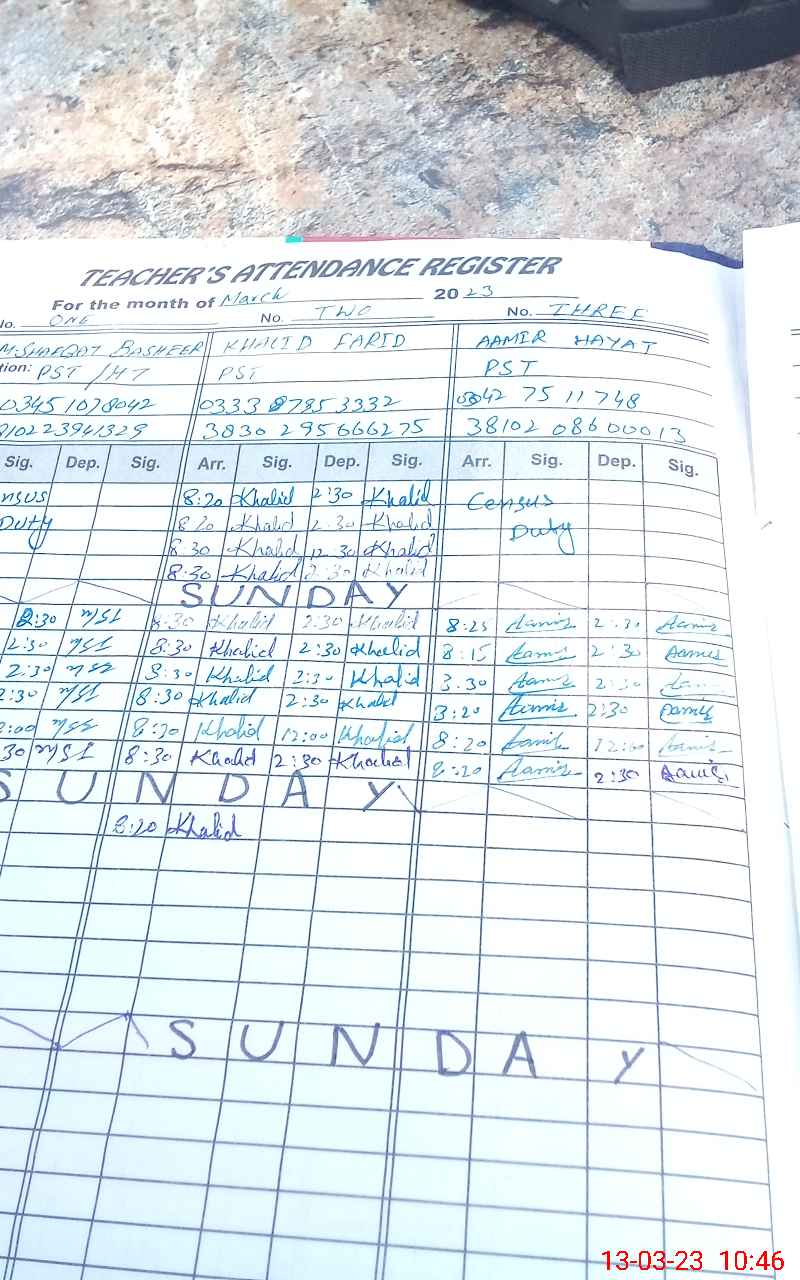 TEACHER'S ATTENDANCE REGISTER
For the month of March 2023
No. ONE No. TWO No. THREE
M.SHAFQAT BASHEER KHALID FARID AAMIR HAYAT
tion: PST/HT PST PST
03451078042 0333 8785 3332 0342 75 11 748
810223941329 3830 295666275 38102 08600013
Sig. Dep. Sig. Arr. Sig. Dep. Sig. Arr. Sig. Dep. Sig.
nsus 8:20 Khalid 2:30 Khalid Census
Duty 8:20 Khalid 2:30 Khalid Duty
8:30 Khalid 12:30 Khalid
8:30 Khalid 2:30 Khalid
SUNDAY
2:30 8:30 Khalid 2:30 Khalid 8:25 Aamir 2:30 Aamir
2:30 8:30 Khalid 2:30 Khalid 8:15 Aamir 2:30 Aamir
2:30 8:30 Khalid 2:30 Khalid 8:30 Aamir 2:30
2:30 8:30 Khalid 2:30 Khalid 8:20 Aamir 2:30 Aamir
2:00 8:20 Khalid 12:00 Khalid 8:20 Aamir 12:00 Aamir
30 8:30 Khalid 2:30 Khalid 8:20 Aamir 2:30 Aamir
SUNDAY
8:20 Khalid
SUNDAY
13-03-23 10:46